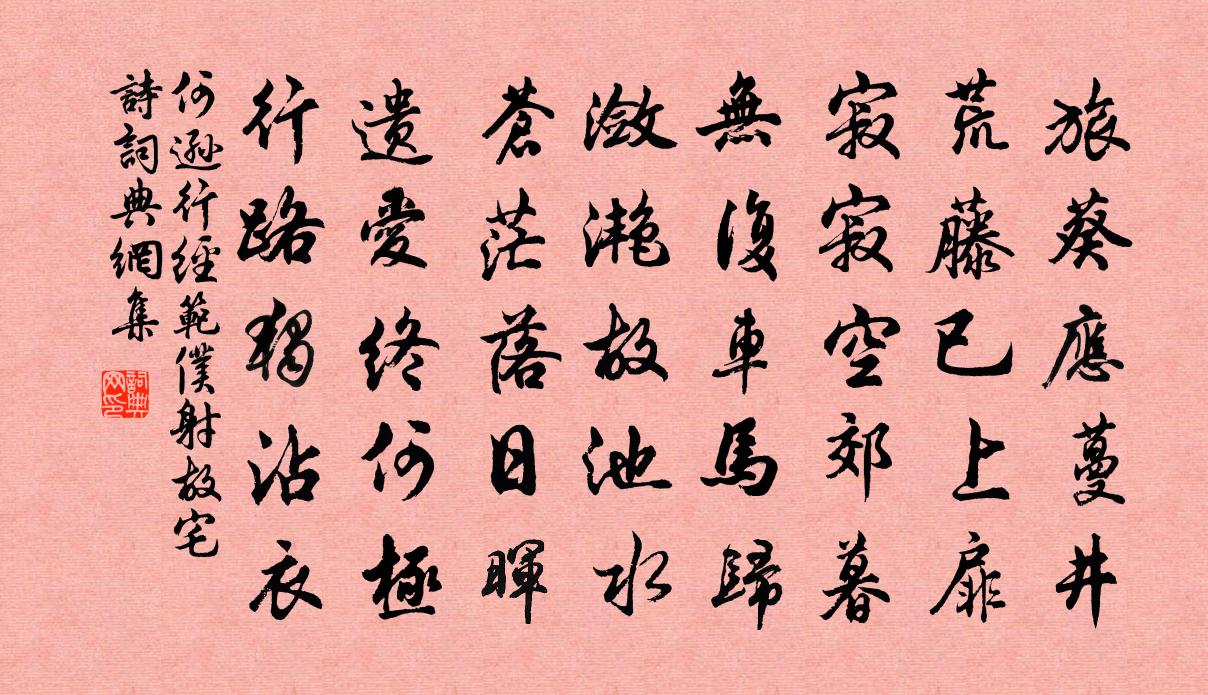 旅葵應蔓井
荒藤已上扉
寂寂空郊暮
無復車馬歸
瀲灩故池水
蒼茫落日暉
遺愛終何極
行路獨沾衣
何遜行經範僕射故宅
詩詞典網集
詞典网印